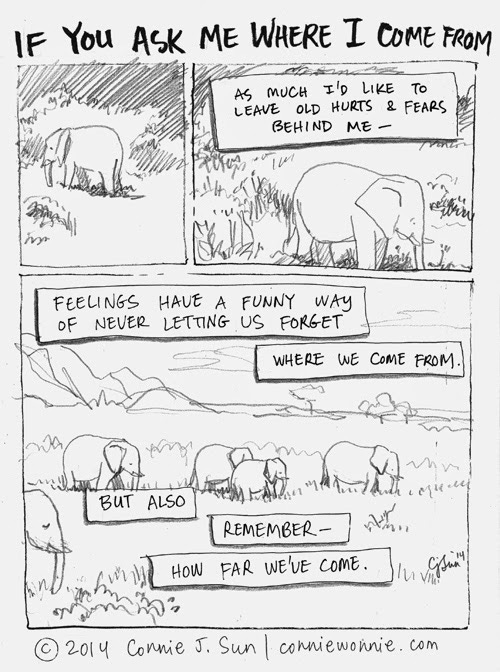 IF YOU ASK ME WHERE I COME FROM
AS MUCH I'D LIKE TO
LEAVE OLD HURTS & FEARS
BEHIND ME —
FEELINGS HAVE A FUNNY WAY
OF NEVER LETTING US FORGET
WHERE WE COME FROM.
BUT ALSO
REMEMBER—
HOW FAR WE'VE COME.
CJSun '14
© 2014 Connie J. Sun | conniewonnie.com